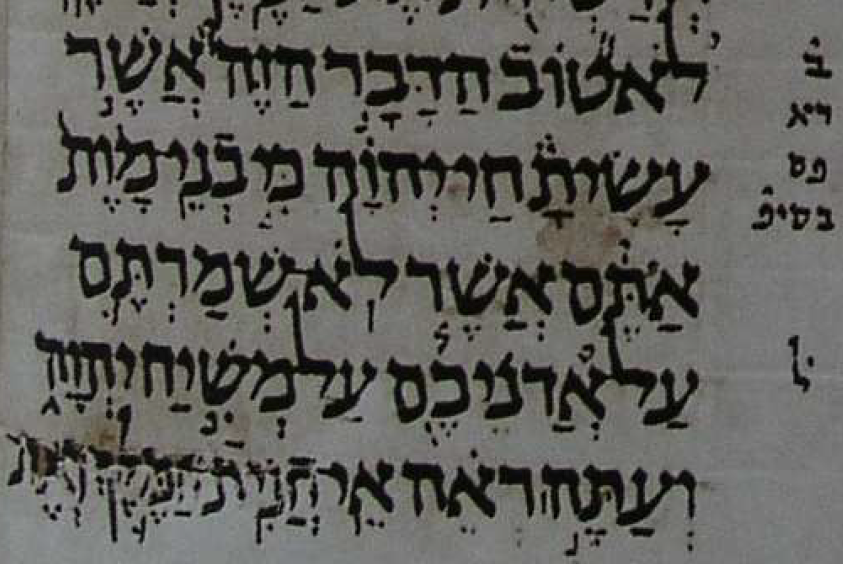 לֹא־טוֹב הַדָּבָר הַזֶּה אֲשֶׁר
עָשִׂיתָ חַי־יְהוָה כִּי בְנֵי־מָוֶת
אַתֶּם אֲשֶׁר לֹא־שְׁמַרְתֶּם
עַל־אֲדֹנֵיכֶם עַל־מְשִׁיחַ יְהוָה
וְעַתָּה רְאֵה אֵי־חֲנִית
ב
רא
פס
בסיפ
ל